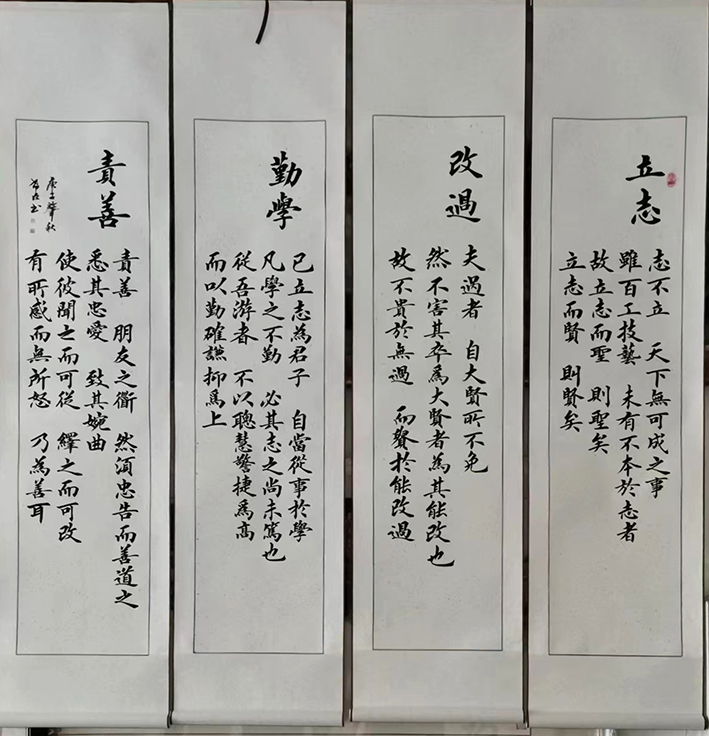 立志
志不立 天下無可成之事
雖百工技藝 未有不本於志者
故立志而聖 則聖矣
立志而賢 則賢矣
改過
夫過者 自大賢所不免
然不害其卒為大賢者為其能改也
故不貴於無過 而貴於能改過
勤學
已立志為君子 自當從事於學
凡學之不勤 必其志之尚未篤也
從吾游者 不以聰慧警捷為高
而以勤確謙抑為上
責善
責善 朋友之衜 然須忠告而善道之
悉其忠愛 致其婉曲
使彼聞之而可從 繹之而可改
有所感而無所怒 乃為善耳
庚子肇秋